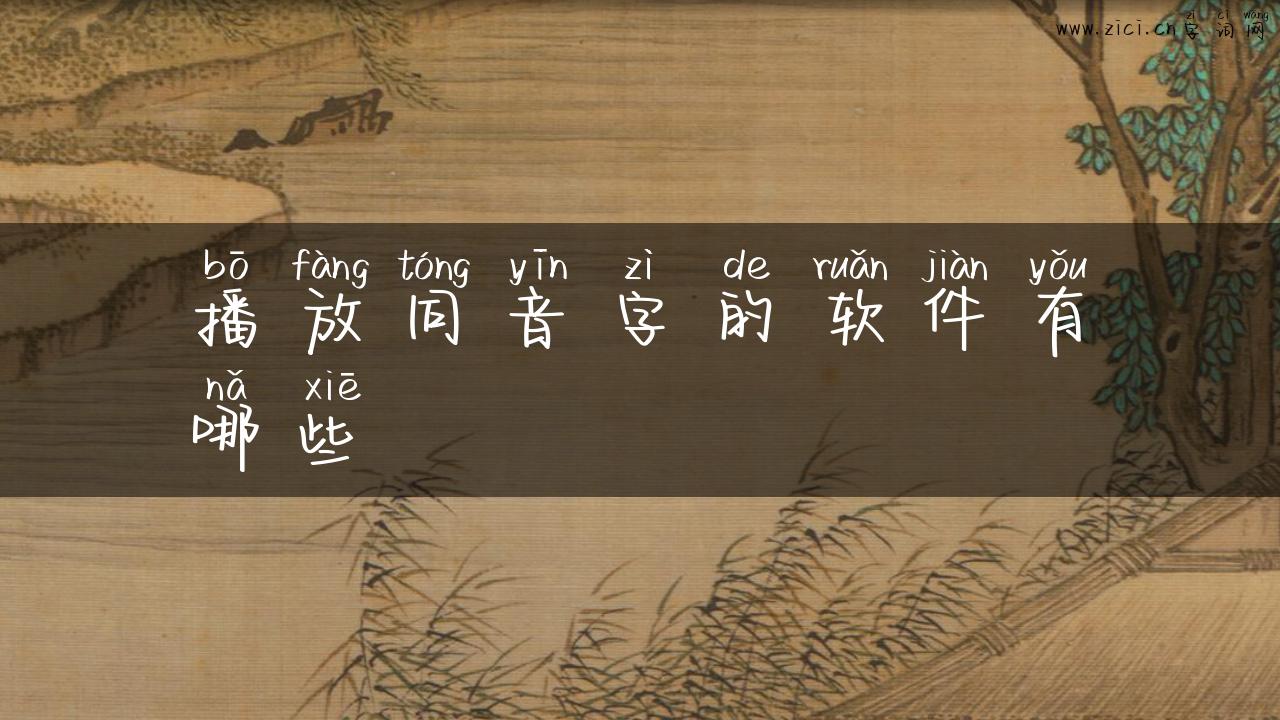 zì cí wǎng
www.zici.cn字词网
bō fàng tóng yīn zì de ruǎn jiàn yǒu
播放同音字的软件有
nǎ xiē
哪些